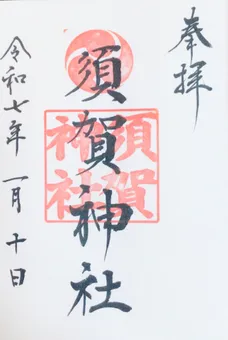 奉拝
須賀神社
須賀
神社
令和七年 一月 十日